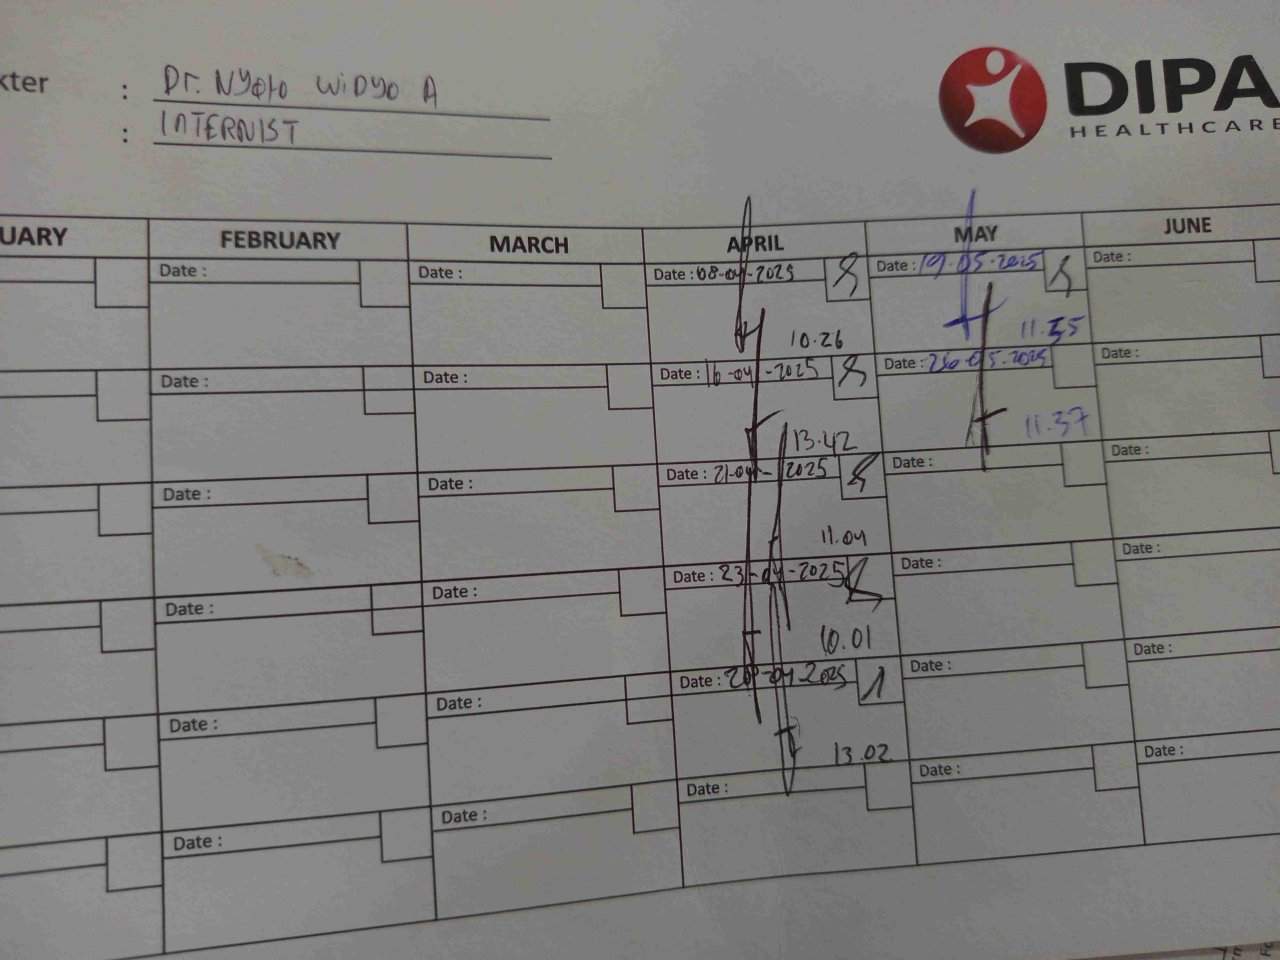 kter : Dr. Nyoto Widyo A
: INTERNIST
DIPA
HEALTHCARE
UARY FEBRUARY MARCH APRIL MAY JUNE
Date : Date : Date : 08-04-2025 Date : 19-05-2025 Date :
10.26 11.35
Date : Date : Date : 16-04-2025 Date : 26-05-2025 Date :
13.42 11.37
Date : Date : Date : 21-04-2025 Date : Date :
11.04
Date : Date : Date : 23-04-2025 Date : Date :
10.01
Date : Date : Date : 04-2025 Date : Date :
13.02
Date : Date : Date : Date : Date :